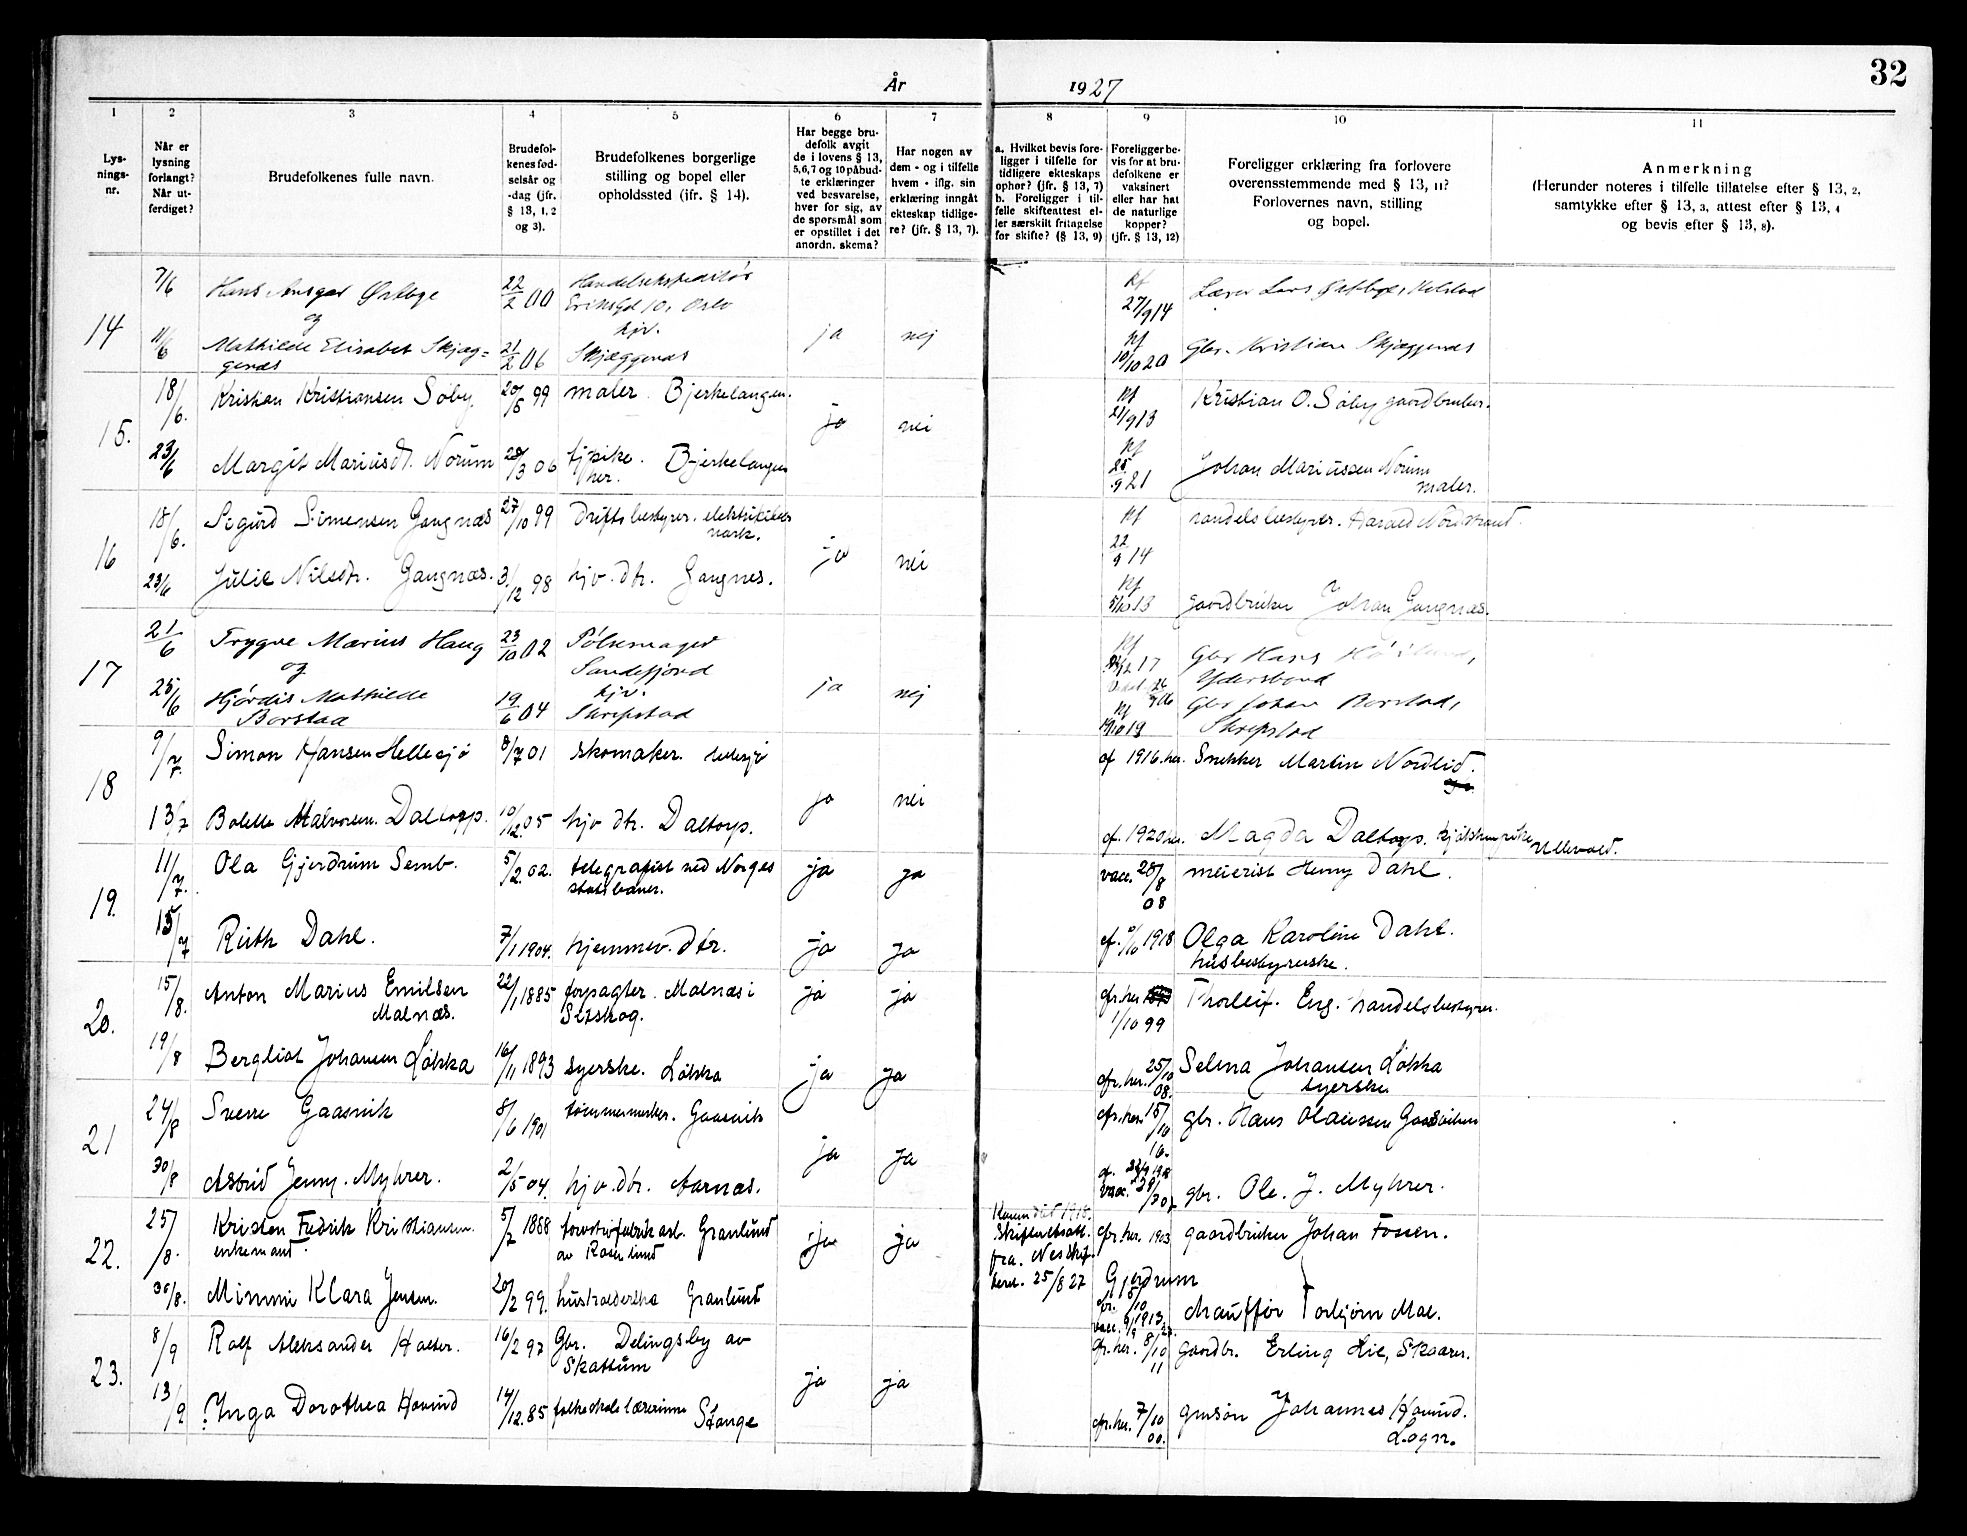 32
År 1927
1 2 3 4 5 6 7 8 9 10 11
Lys-
nings-
nr.
Når er
lysning
forlangt?
Når ut-
ferdiget?
Brudefolkenes fulle navn.
Brudefol-
kenes fød-
selsår og
-dag (jfr.
§ 13, 1, 2
og 3).
Brudefolkenes borgerlige
stilling og bopel eller
opholdssted (jfr. § 14).
Har begge bru-
defolk avgit
de i lovens § 13,
5,6,7 og 10 påbud-
te erklæringer
ved besvarelse,
hver for sig, av
de spørsmål som
er opstillet i det
anordn. skema?
Har nogen av
dem - og i tilfelle
hvem - iflg. sin
erklæring inngått
ekteskap tidlige-
re? (jfr. § 13, 7).
a. Hvilket bevis fore-
ligger i tilfelle for
tidligere ekteskaps
ophør? (jfr. § 13, 7)
b. Foreligger i til-
felle skifteattest el-
ler særskilt fritagelse
for skifte? (§ 13, 9)
Foreligger be-
vis for at bru-
defolkene er
vaksinert
eller har hat
de naturlige
kopper?
(jfr. § 13, 12)
Foreligger erklæring fra forlovere
overensstemmende med § 13, 11?
Forlovernes navn, stilling
og bopel.
Anmerkning
(Herunder noteres i tilfelle tillatelse efter § 13, 2,
samtykke efter § 13, 3, attest efter § 13, 4
og bevis efter § 13, 8).
14 7/6 Hans Ansgar Østbye 22/2 00 Handelsekspeditør
Eriksgd 10, Oslo kf 27/9 14 Lærer Lars Østbye,
og hjv. ja nej
11/6 Mathilde Elisabet Skjæg=
genæs 21/2 06 Skjæggenæs kf 10/10 20 Gbr. Kristian Skjæggenæs
15. 18/6. Kristian Kristiansen Søby. 20/5 99 maler. Bjerkelangen. ja nei kf 21/9 13 Kristian O. Søby gaardbruker.
23/6 Margit Mariusd. Norum 28/3 06 tj.pike. Bjerkelangen
her. kf 25/9 21 Johan Mariussen Norum
maler.
16 18/6. Sigurd Simensen Gangnæs 27/10 99 Driftsbestyrer. elektrisitets
verk. ja nei kf 22/9 14 handelsbestyrer. Harald Nordstrand.
23/6 Julie Nilsdtr. Gangnæs. 3/12 98 hjv. dtr. Gangnes. kf 5/10 13 gaardbruker Johan Gangnæs.
17 21/6 Trygve Marius Haug 23/10 02 Pølsemager
Sandefjord kf 17 Gbr Hans
Ydersbond
og hjv. ja nej
25/6 Hjørdis Mathilde
Borstad 19/6 04 Skrepstad kf 19/10 19 Gbr Johan Borstad,
Skrepstad
18 9/7. Simon Hansen Hellesjø 8/7 01 skomaker. Hellesjø ja nei cf 1916. her. Snekker Martin Nordlid.
13/7 Bolette Halvorsen. Daltorp. 10/12. 05 hjv dtr. Daltorp. cf. 1920 her. Magda Daltorp. kjøkkenpike Ullevaal.
19. 11/7. Ola Gjerdrum Semb. 5/2. 02. telegrafist ved Norges
statsbaner. ja ja vacc. 28/8 08 meierist Henry Dahl.
15/7 Ruth Dahl. 7/1 1904. hjemmev. dtr. ja ja cf. 1918 Olga Karoline Dahl.
husbestyrerske.
20. 15/8. Anton Marius Emilsen
Malnæs. 22/1 1885 forpagter. Malnæs i
Setskog. ja ja cfr. her 1/10 99 Thorleif. Eng. handelsbestyrer.
19/8 Bergliot Johansen Løkka 16/11 1893 syerske. Løkka ja ja cfr. her. 25/10 08. Selma Johansen Løkka
syerske.
21 24/8 Sverre Gaasvik 8/6 1901 tømmermerker. Gaasvik ja ja cfr. her. 15/10 16. gbr. Hans Olaussen Gaasviken
30/8 Astrid Jenny. Myhrer. 2/5 04. hjv. dtr. Aarnæs. cf.
vacc. gbr. Ole. J. Myhrer.
22. 25/8. Kristen Fredrik Kristiansen.
enkemand. 5/7 1888 Granlund
av ja ja 1918.
Skifteattest.
fra. Nes
25/8 27 cfr. her. 1903 gaardbruker Johan Fossen.
30/8. Mimmi Klara Jensen. 20/2 99. husholderske Granlund Gjerdrum
cfr. 5/10 1913
vacc. chauffør Torbjørn Moe.
23. 8/9 Rolf Aleksander Holter. 16/2 97 Gbr. Delingsby av
Skattum ja ja cfr. her. 8/10 11 gaardbr. Erling Lie, Skaarer.
13/9 Inga Dorothea Hovind 14/12. 85 folkeskolelærerinne Stange cfr. her. 7/10 00. Johannes Hovind.
Løgn.